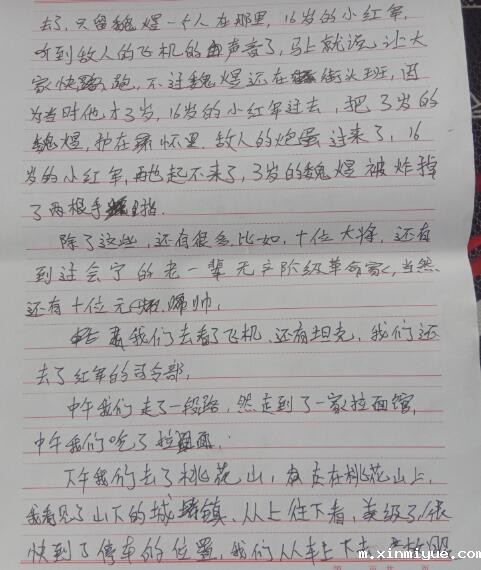 去了，只留魏煜一个人在那里，16岁的小红军，
听到敌人的飞机的声音了，马上就说让大
家快跑，不过魏煜还在街头玩，因
为当时他才3岁，16岁的小红军过去，把3岁的
魏煜，护在怀里，敌人的炮蛋过来了，16
岁的小红军，再也起不来了，3岁的魏煜被炸掉
了两根手指。
除了这些，还有很多，比如，十位大将，还有
到过会宁的老一辈无产阶级革命家，当然
还有十位元帅。
我们去看了飞机，还有坦克，我们还
去了红军的司令部，
中午我们走了一段路，然走到了一家拉面馆，
中午我们吃了拉面，
下午我们去了桃花山，在桃花山上，
我看见了山下的城镇，从上往下看，美极了，很
快到了停车的位置，我们从车上下去
m.xinmiyue.com